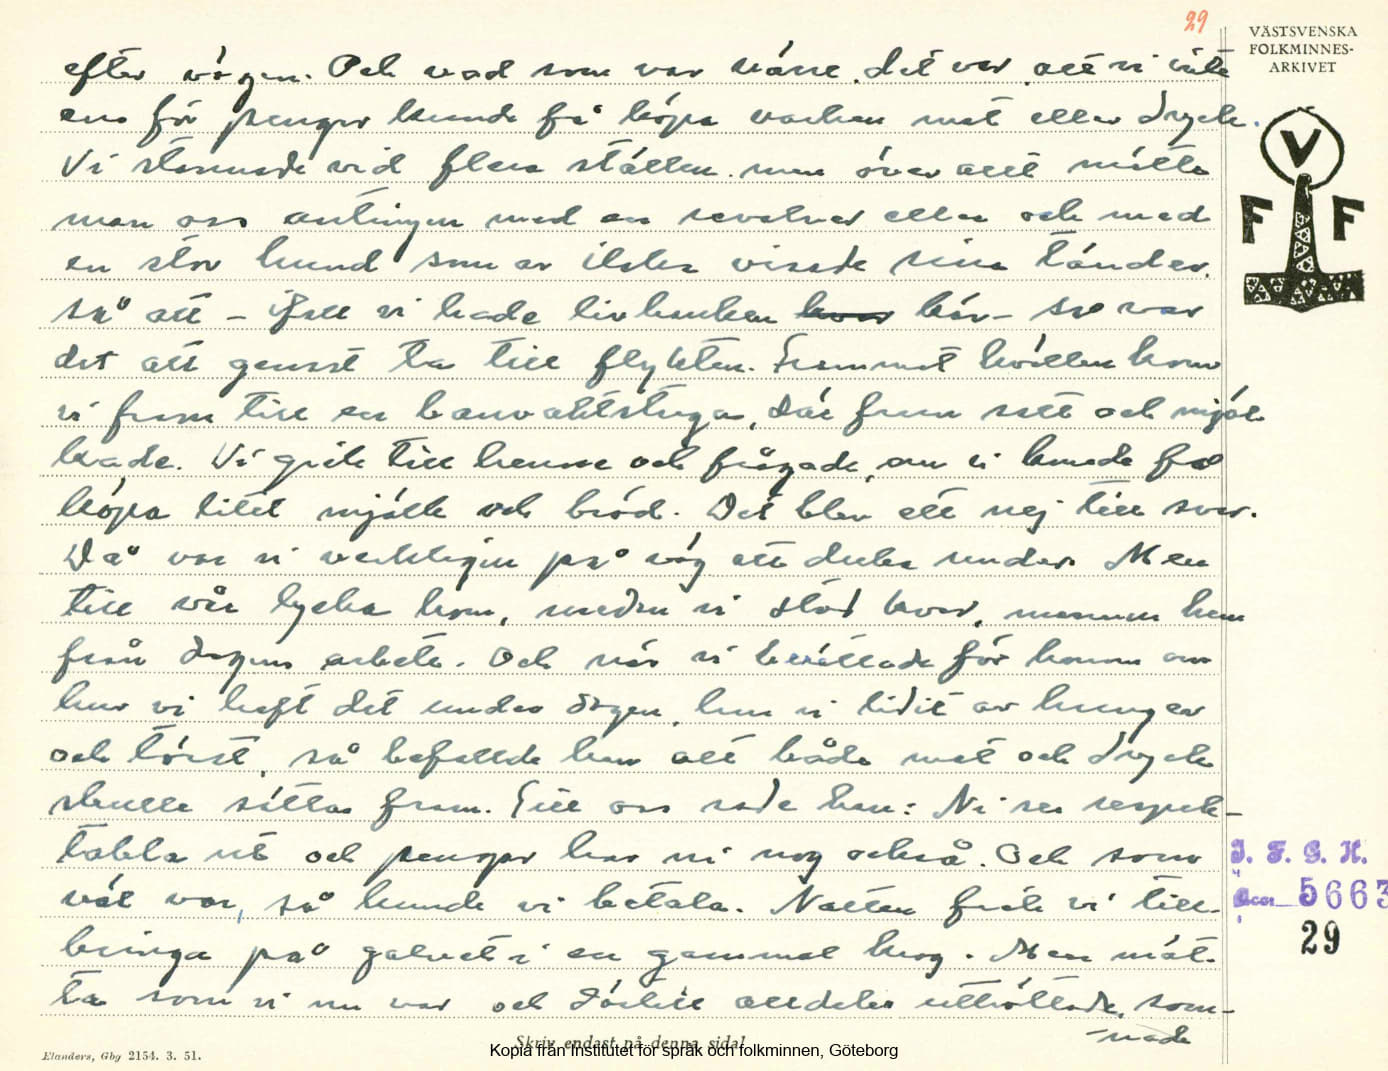 29
VÄSTSVENSKA
FOLKMINNES-
ARKIVET
V
F F
efter vägen. Och vad som var värre, det var att vi inte
ens för pengar kunde få köpa varken mat eller dryck.
Vi stannade vid flera ställen, men över allt mötte
man oss antingen med en revolver eller och med
en stor hund som av ilska visade sina tänder,
så att – ifall vi hade livhanken kvar kär – så var
det att genast ta till flykten. Frammot kvällen kom
vi fram till en banvaktstuga, där frun satt och mjöl-
kade. Vi gick till henne och frågade om vi kunde få
köpa litet mjölk och bröd. Det blev ett nej till svar.
Då var vi verkligen på väg att duka under. Men
till vår lycka kom, medan vi stod kvar, mannen hem
från dagens arbete. Och när vi berättade för honom om
hur vi haft det under dagen, hur vi lidit av hunger
och törst, så befallde han att både mat och dryck
skulle sättas fram. Till oss sade han: Ni ser respek-
tabla ut och pengar har ni nog också. Och som
väl var, så kunde vi betala. Natten fick vi till-
bringa på golvet i en gammal krog. Men mät-
ta som vi nu var och därtill alldeles uttröttade, som-
nade
I. F. G. H.
Acc. 5663
29
Skriv endast på denna sida!
Elanders, Gbg 2154. 3. 51.
Kopia från Institutet för språk och folkminnen, Göteborg